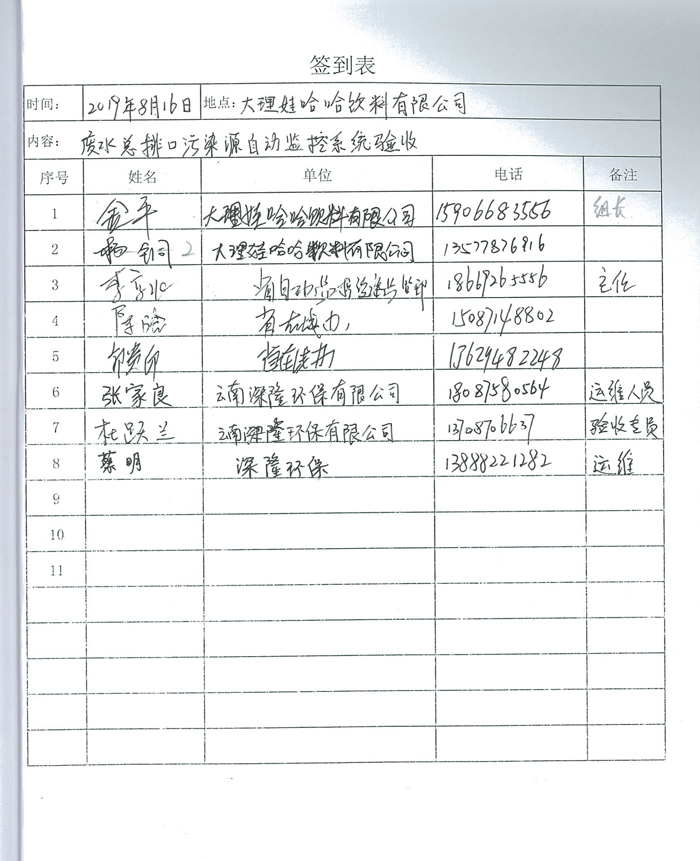 签到表
时间: 2019年8月16日 地点: 大理娃哈哈饮料有限公司
内容: 废水总排口污染源自动监控系统验收
序号 姓名 单位 电话 备注
1 金平 大理娃哈哈饮料有限公司 15906683556 组长
2 大理娃哈哈饮料有限公司 13577876916
3 18669265556 主任
4 陈晗 15087148802
5 13629482248
6 张家良 云南深隆环保有限公司 18087580564 运维人员
7 杜跃兰 云南深隆环保有限公司 13708706637 验收专员
8 蔡明 深隆环保 13888221282 运维
9
10
11